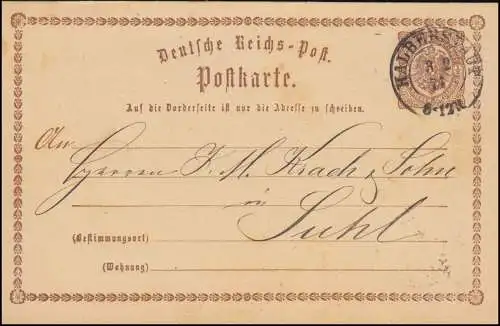 Deutsche Reichs-Post.
Postkarte.
HALBERSTADT
8-12V.
Auf die Vorderseite ist nur die Adresse zu schreiben.
An
Herren F. M. Krach & Sohn
in
Suhl
(Bestimmungsort)
(Wohnung)